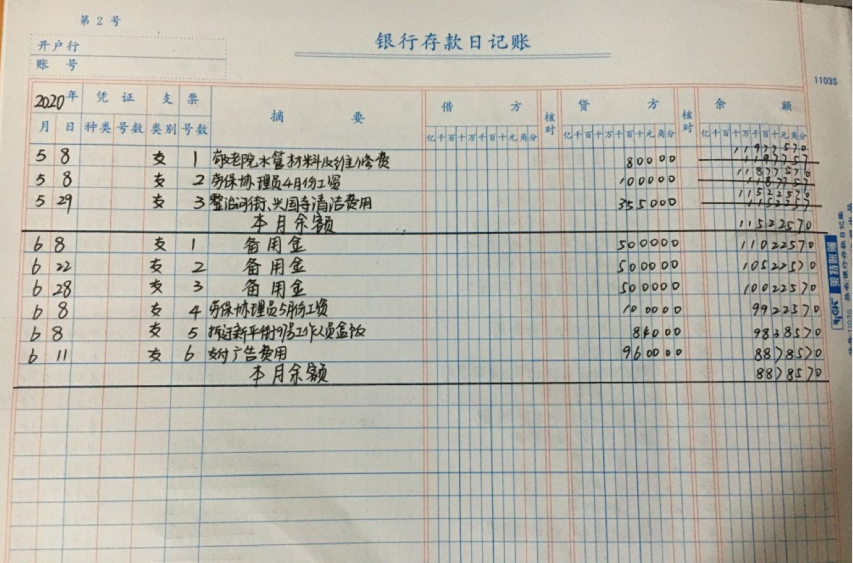 第 2 号
银行存款日记账
开户行
账 号
11035
2020年 凭 证 支 票 摘 要 借 方 核对 贷 方 核对 余 额
月 日 种类 号数 类别 号数 亿千百十万千百十元角分 亿千百十万千百十元角分 亿千百十万千百十元角分
11977570
5 8 支 1 敬老院水管材料及维修费 80000 1197757
11877570
5 8 支 2 劳保协理员4月份工资 100000 1187757
11522570
5 29 支 3 整治河街、兴国寺清洁费用 355000 1152257
本月余额 11522570
6 8 支 1 备用金 500000 11022570
6 22 支 2 备用金 500000 10522570
6 28 支 3 备用金 500000 10022570
6 8 支 4 劳保协理员5月份工资 100000 9922570
6 8 支 5 拆迁新平街91号工作人员盒饭 84000 9838570
6 11 支 6 支付广告费用 960000 8878570
本月余额 8878570